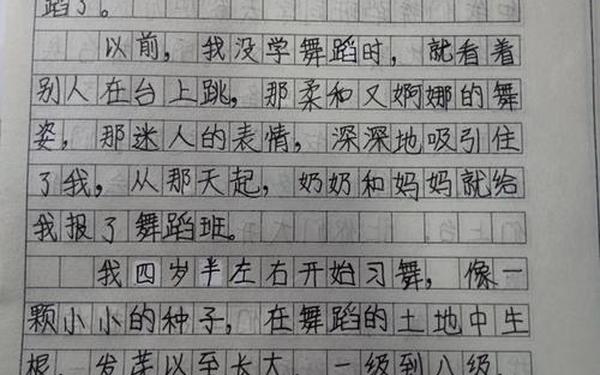 蹈了。
以前，我没学舞蹈时，就看着
别人在台上跳，那柔和又婀娜的舞
姿，那迷人的表情，深深地吸引住
了我，从那天起，奶奶和妈妈就给
我报了舞蹈班。
我四岁半左右开始习舞，像一
颗小小的种子，在舞蹈的土地中生
根，发芽以至长大，一级到八级，